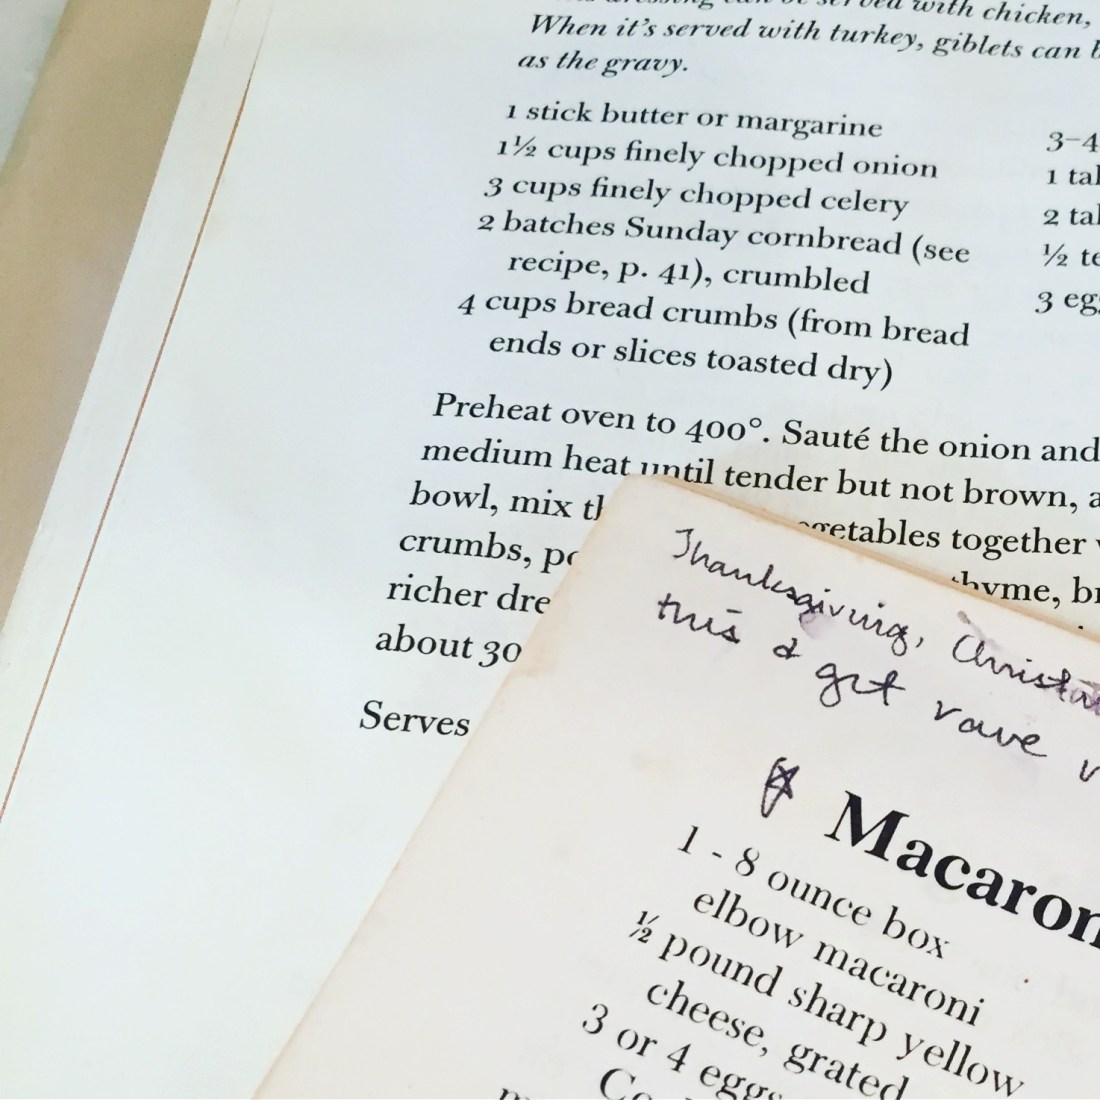 dressing can be served with chicken,
When it's served with turkey, giblets can
as the gravy.
1 stick butter or margarine
1½ cups finely chopped onion
3 cups finely chopped celery
2 batches Sunday cornbread (see
recipe, p. 41), crumbled
4 cups bread crumbs (from bread
ends or slices toasted dry)
3–4
1
2
½
3
Preheat oven to 400°. Sauté the onion and
medium heat until tender but not brown,
bowl, mix
together
crumbs,
thyme,
richer
about 30
Serves
Thanksgiving,
this & get rave
Macaron
1 - 8 ounce box
elbow macaroni
½ pound sharp yellow
cheese, grated
3 or 4 eggs